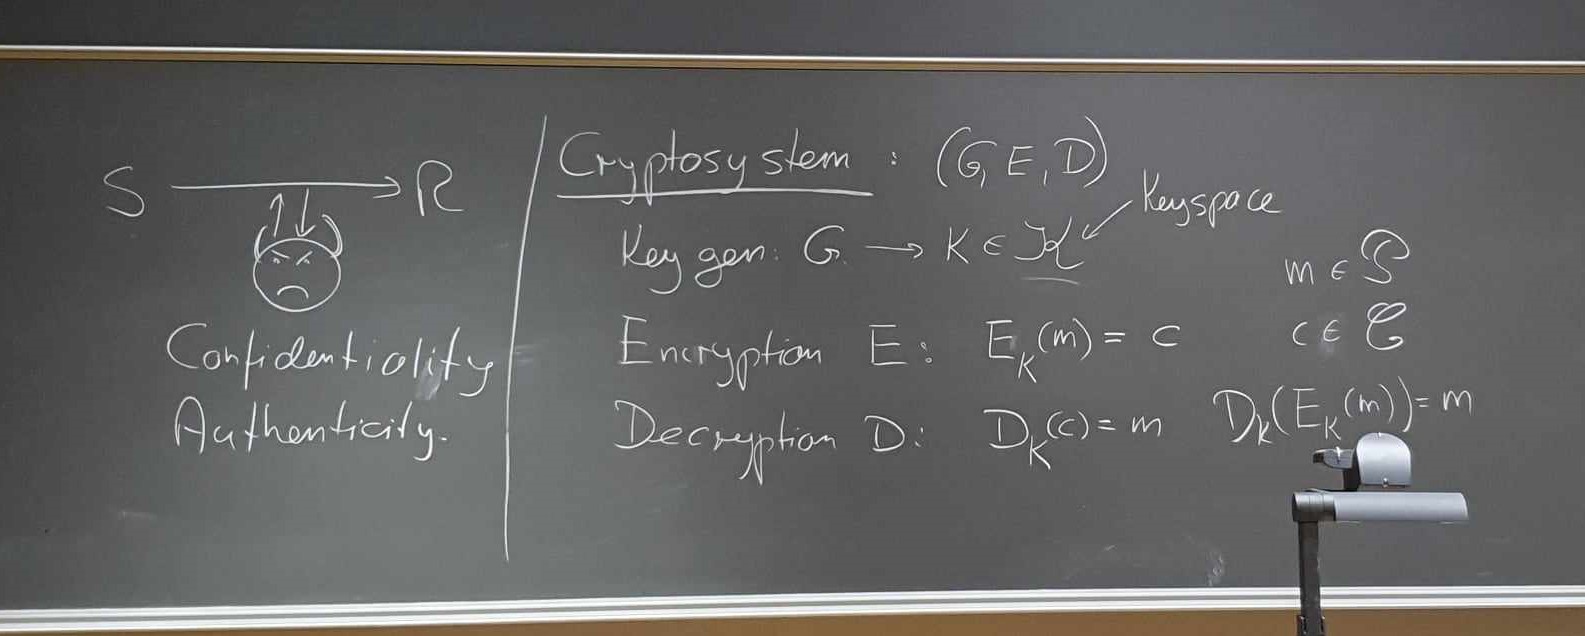 S → R
Confidentiality
Authenticity.
Cryptosystem : (G, E, D)
Keyspace
Key gen: G → K ∈ 𝒦
m ∈ 𝒫
Encryption E: E_K(m) = c
c ∈ 𝒞
Decryption D: D_K(c) = m
D_K(E_K(m)) = m